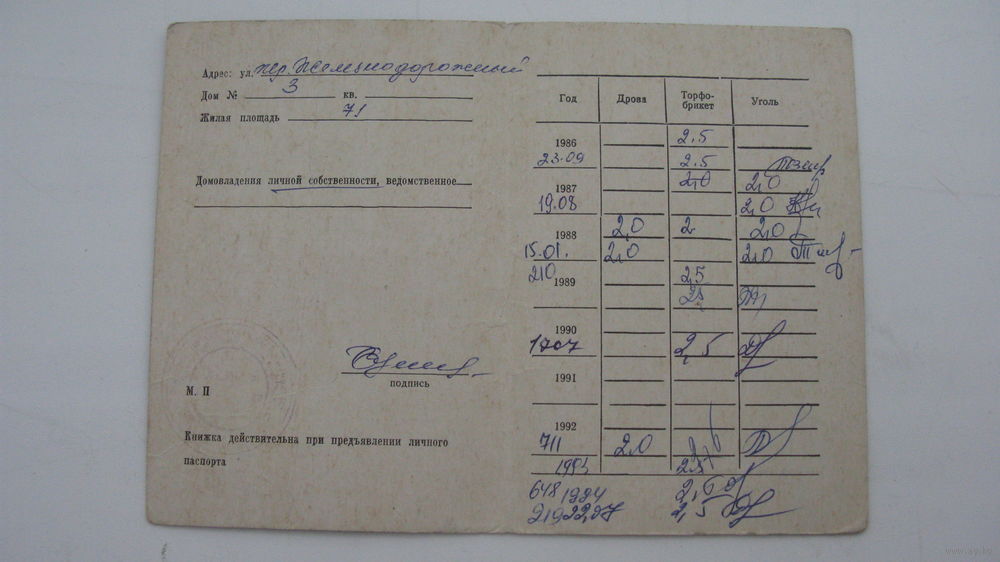 Адрес: ул. пер. Железнодорожный
Дом № 3 кв.
Жилая площадь 71
Домовладения личной собственности, ведомственное
подпись
М. П
Книжка действительна при предъявлении личного
паспорта
Год Дрова Торфо-брикет Уголь
1986 2.5
23.09 2.5
1987 2,0 2,0
19.08 2,0
1988 2,0 2 2,0
15.01. 2,0 2,0
210 1989 2,5
1990
1707 2,5
1991
1992
711 2.0
648 1994